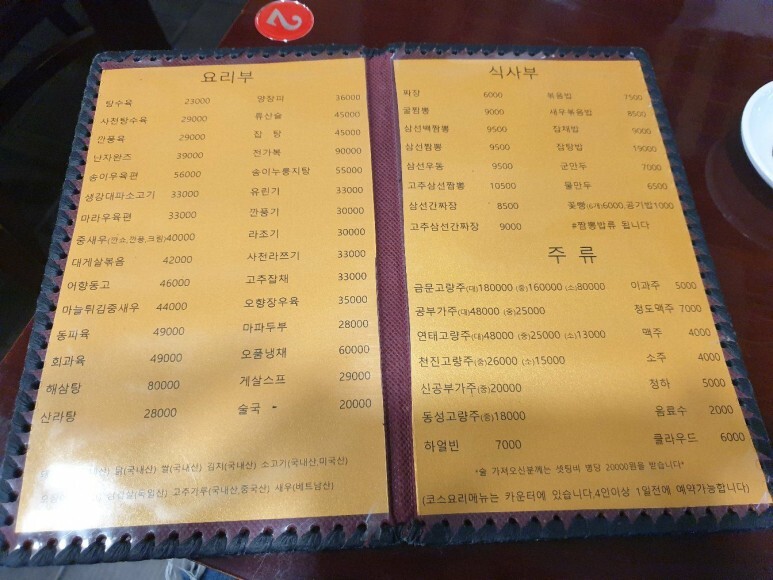 2
요리부
탕수육 23000 양장피 36000
사천탕수육 29000 류산슬 45000
깐풍육 29000 잡 탕 45000
난자완즈 39000 전가복 90000
송이우육편 56000 송이누룽지탕 55000
생강대파소고기 33000 유린기 33000
마라우육편 33000 깐풍기 30000
중새우(깐쇼,깐풍,크림)40000 라조기 30000
대게살볶음 42000 사천라쯔기 33000
어향동고 46000 고추잡채 33000
마늘튀김중새우 44000 오향장우육 35000
동파육 49000 마파두부 28000
회과육 49000 오품냉채 60000
해삼탕 80000 게살스프 29000
산라탕 28000 술국 - 20000
닭(국내산) 쌀(국내산) 김치(국내산) 소고기(국내산,미국산)
고추가루(국내산,중국산) 새우(베트남산)
식사부
짜장 6000 볶음밥 7500
굴짬뽕 9000 새우볶음밥 8500
삼선백짬뽕 9500 잡채밥 9000
삼선짬뽕 9500 잡탕밥 19000
삼선우동 9500 군만두 7000
고추삼선짬뽕 10500 물만두 6500
삼선간짜장 8500 꽃빵(6개)6000,공기밥1000
고추삼선간짜장 9000 #짬뽕밥류 됩니다
주 류
금문고량주(대)180000 (중)160000 (소)80000 이과주 5000
공부가주(대)48000 (중)25000 청도맥주 7000
연태고량주(대)48000 (중)25000 (소)13000 맥주 4000
천진고량주(중)26000 (소)15000 소주 4000
신공부가주(중)20000 청하 5000
동성고량주(중)18000 음료수 2000
하얼빈 7000 클라우드 6000
*술 가져오신분께는 셋팅비 병당 20000원을 받습니다*
(코스요리메뉴는 카운터에 있습니다.4인이상 1일전에 예약가능합니다)